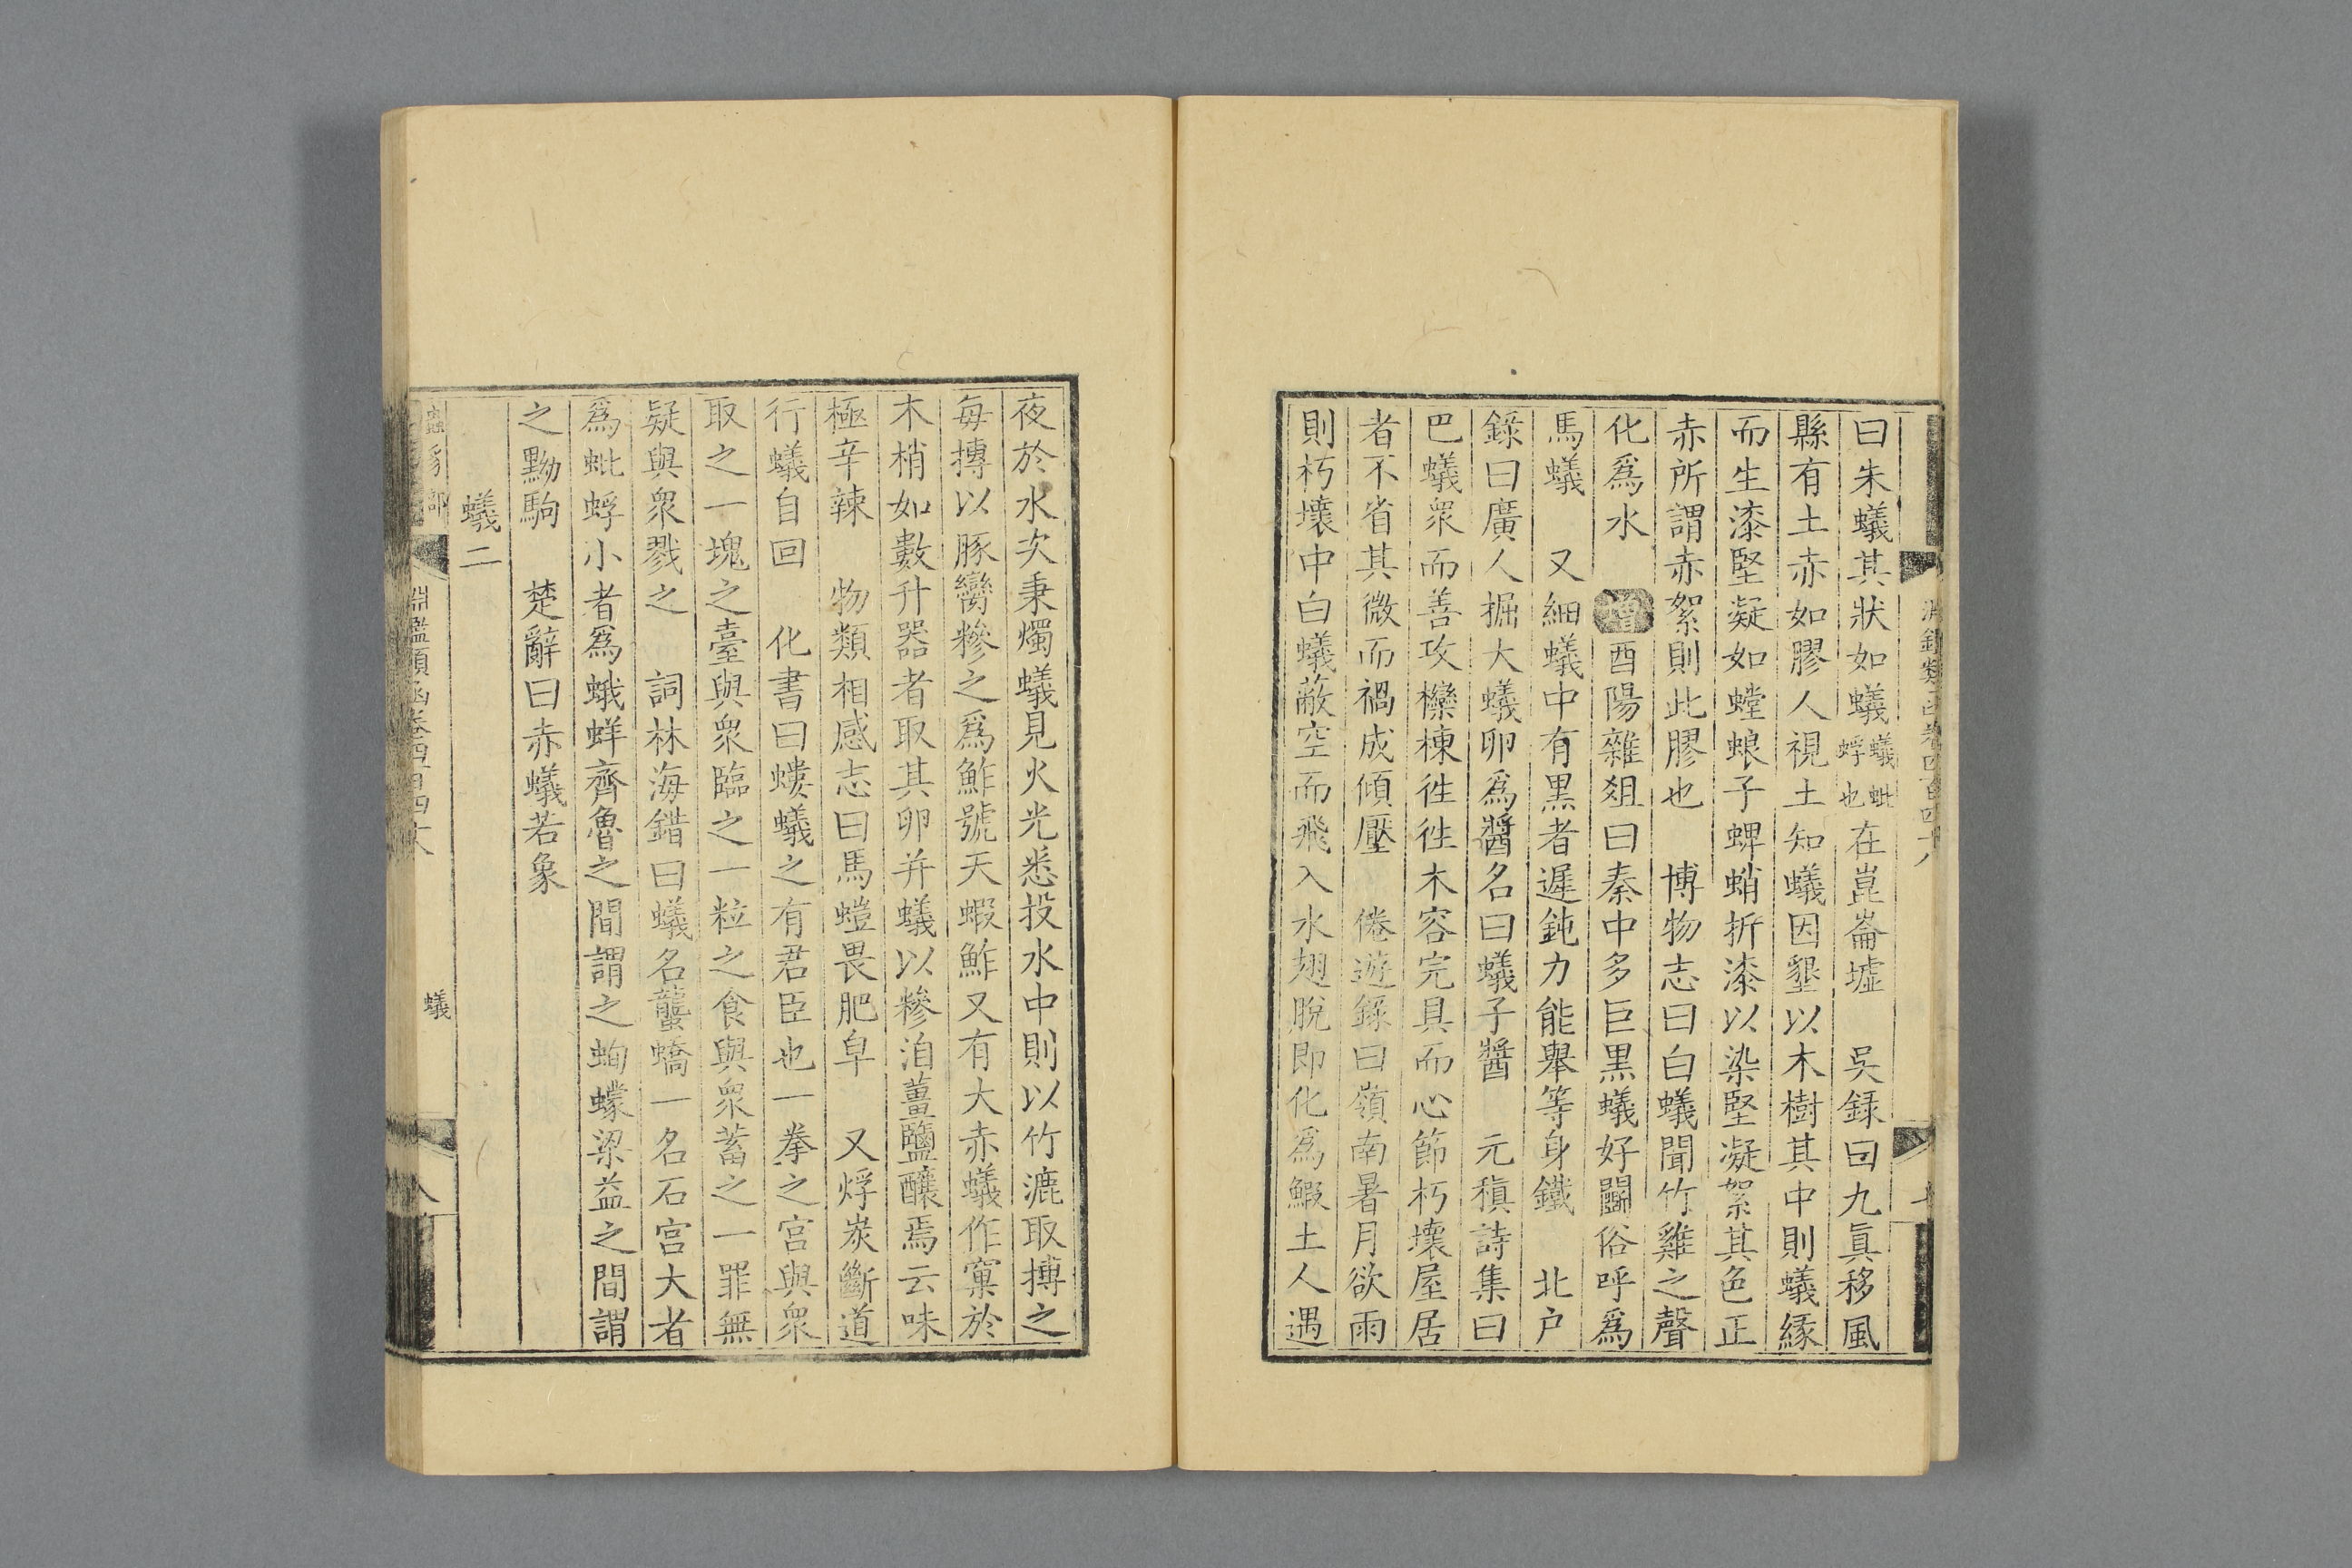 曰朱蟻其狀如蟻蟻蚍蜉也在崑崙墟　吳録曰九眞移風
縣有土赤如膠人視土知蟻因墾以木樹其中則蟻緣
而生漆堅凝如螳蜋子蜱蛸折漆以染堅凝絮其色正
赤所謂赤絮則此膠也　博物志曰白蟻聞竹雞之聲
化爲水　增酉陽雜俎曰秦中多巨黒蟻好鬭俗呼爲
馬蟻　又細蟻中有黒者遲鈍力能舉等身鐵　北户
錄曰廣人掘大蟻卵爲醬名曰蟻子醬　元稹詩集曰
巴蟻衆而善攻欒棟徃徃木容完具而心節朽壞屋居
者不省其微而禍成傾壓　倦遊錄曰嶺南暑月欲雨
則朽壞中白蟻蔽空而飛入水翅脫即化爲鰕土人遇
夜於水次秉燭蟻見火光悉投水中則以竹漉取摶之
每摶以豚臠糝之爲鮓號天蝦鮓又有大赤蟻作窠於
木梢如數升器者取其卵并蟻以糝洎薑鹽釀焉云味
極辛辣　物類相感志曰馬螘畏肥皁　又烰炭斷道
行蟻自回　化書曰螻蟻之有君臣也一拳之宮與衆
取之一塊之臺與衆臨之一粒之食與衆蓄之一罪無
疑與衆戮之　詞林海錯曰蟻名蠪蟜一名石宮大者
爲蚍蜉小者爲蛾蛘齊魯之間謂之蚼蠓梁益之間謂
之黝駒　楚辭曰赤蟻若象
蟻二
蟲豸部
淵鑑類函卷四百四十八
蟻
八